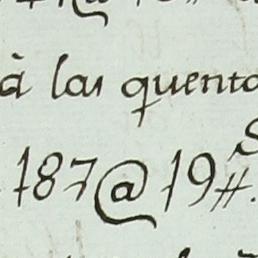 à las quento
187@19#.